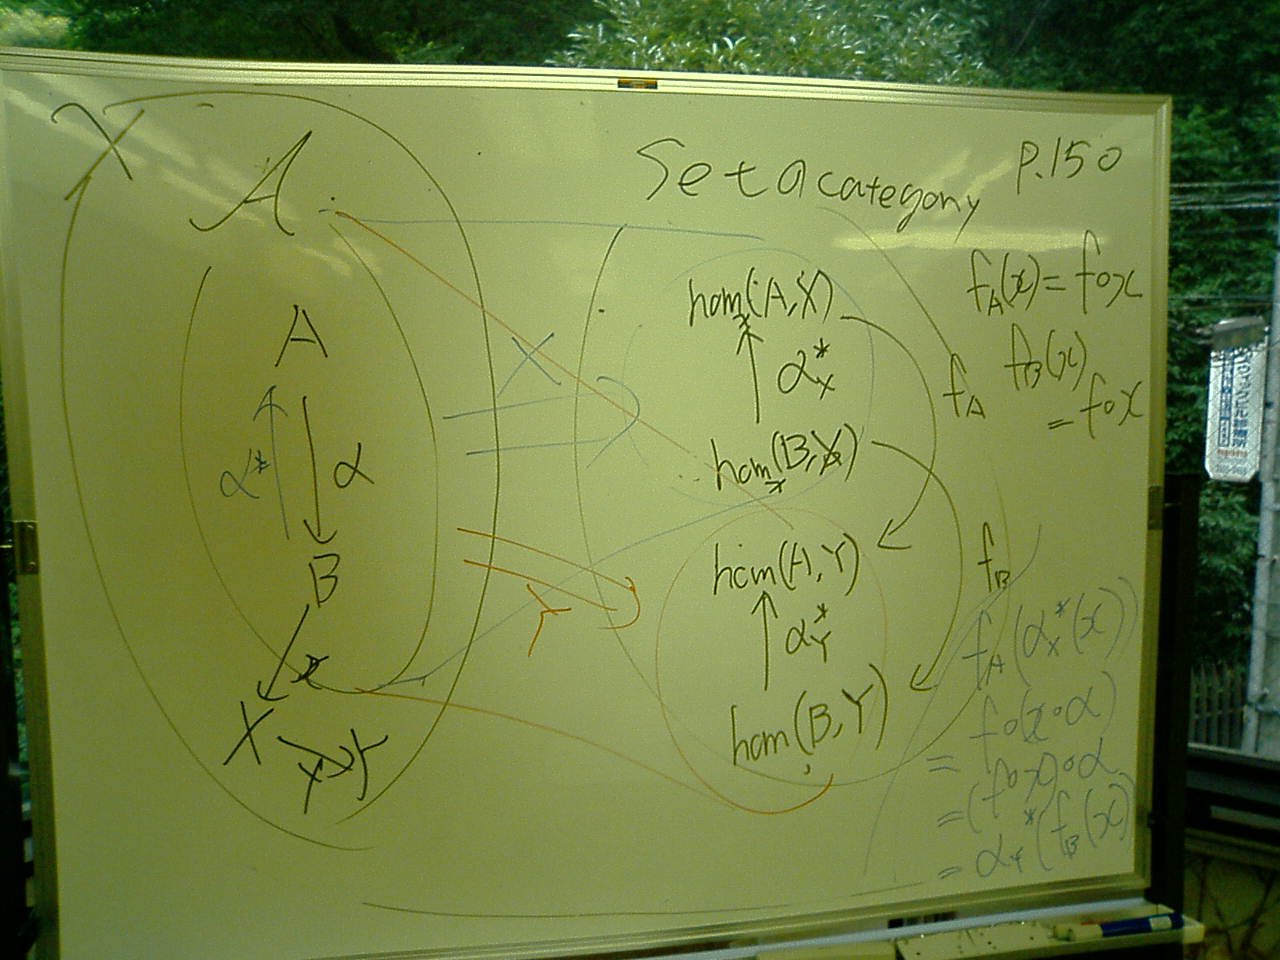 X
A
Set a category P.150
A
α* α
B
x
X
Y
X
Y
hom(A,X)
α*X
homX(B,X)
hom(A,Y)
α*Y
hom(B,Y)
fA
fB
fA(x)=f∘x
fB(x)
=f∘x
fA(αX*(x))
=f∘(x∘α)
=(f∘x)∘α
=αY*(fB(x))